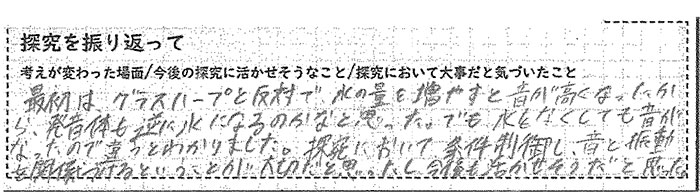 探究を振り返って
考えが変わった場面/今後の探究に活かせそうなこと/探究において大事だと気づいたこと
最初は、グラスハープと反対で、水の量を増やすと音が高くなったか
ら、発音体も逆に水になるのかなと思った。でも水をなくしても音が
なったので違うとわかりました。探究において、条件制御し、音と振動
を関係づけるということが大切だと思ったし、今後も活かせそうだと思った